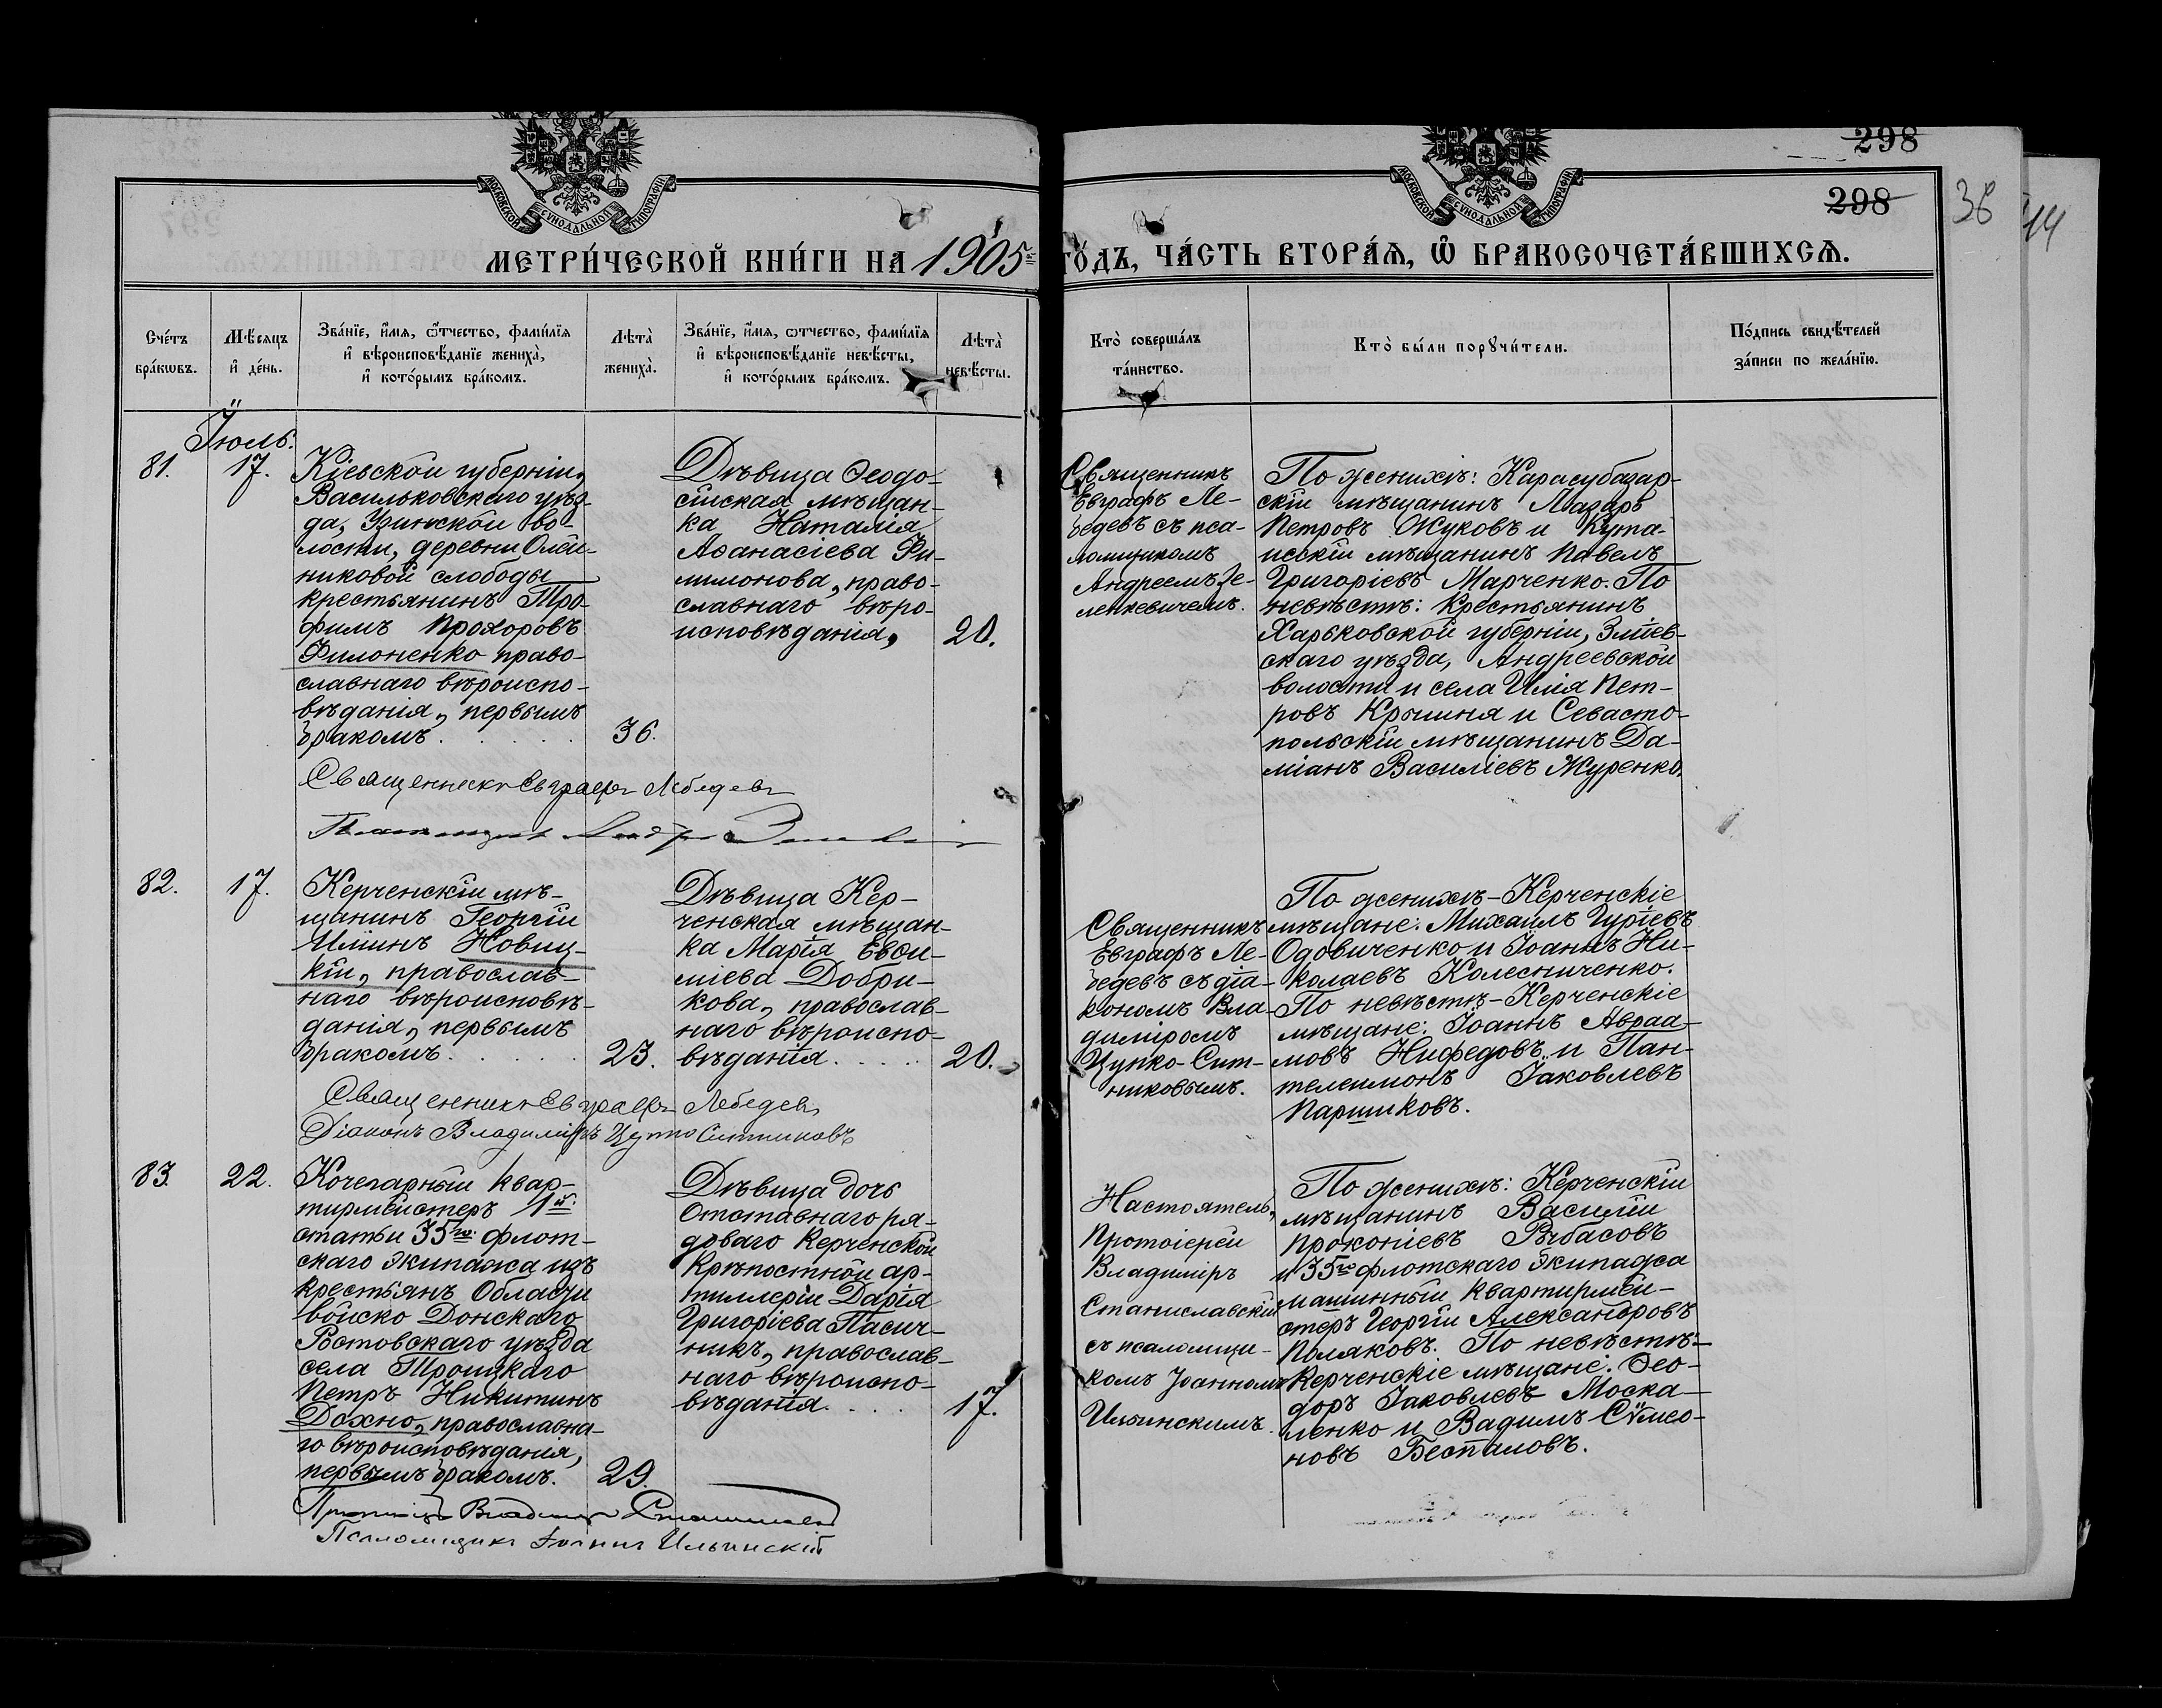 298
298
38
44
МОСКОВСКОЙ СѴНОДАЛЬНОЙ ТИПОГРАФІИ
МОСКОВСКОЙ СѴНОДАЛЬНОЙ ТИПОГРАФІИ
МЕТРИ́ЧЕСКОЙ КНИ́ГИ НА 1905й
ГО́ДЪ, ЧА́СТЬ ВТОРА́Ѧ, Ѽ БРАКОСОЧЕТА́ВШИХСѦ.
Сче́тъ
бра́кѡвъ.
Мѣ́сяцъ
и҆ де́нь.
Зва́нїе, и҆́мѧ, ѻ҆́тчество, фами́лїѧ
и҆ вѣроисповѣ́данїе жениха̀,
и҆ кото́рымъ бра́комъ.
Лѣта̀
жениха̀.
Зва́нїе, и҆́мѧ, ѻ҆́тчество, фами́лїѧ
и҆ вѣроисповѣ́данїе невѣ́сты,
и҆ кото́рымъ бра́комъ.
Лѣта̀
невѣ́сты.
Кто̀ соверша́лъ
та́инство.
Кто̀ бы́ли порꙋчи́тели.
По́дпись свидѣ́телей
за́писи по жела́нїю.
Іюль.
81.
17.
Кіевской губерніи,
Васильковскаго уѣз-
да, Узинской во-
лости, деревни Олей-
никовой слободы
крестьянинъ Тро-
фимъ Прохоровъ
Филоненко право-
славнаго вѣроиспо-
вѣданія, первымъ
бракомъ.
36.
Дѣвица Ѳеодо-
сійская мѣщан-
ка Наталія
Аѳанасіева Фи-
лимонова, право-
славнаго вѣро-
исповѣданія,
20.
Священникъ
Евграфъ Ле-
бедевъ съ пса-
ломщикомъ
Андреемъ Зе-
ленкевичемъ.
По женихѣ: Карасубазар-
скій мѣщанинъ Лазарь
Петровъ Жуковъ и Кута-
исскій мѣщанинъ Павелъ
Григоріевъ Марченко. По
невѣстѣ: Крестьянинъ
Харьковской губерніи, Зміев-
скаго уѣзда, Андреевской
волости и села Илія Пет-
ровъ Крыхиня и Севасто-
польскій мѣщанинъ Да-
міанъ Василіевъ Журенко.
Священникъ Евграфъ Лебедевъ
Псаломщикъ Андрей
82.
17.
Керченскій мѣ-
щанинъ Георгій
Иліинъ Новиц-
кій, православ-
наго вѣроисповѣ-
данія, первымъ
бракомъ.
23.
Дѣвица Кер-
ченская мѣщан-
ка Марія Евѳи-
міева Добри-
кова, православ-
наго вѣроиспо-
вѣданія.
20.
Священникъ
Евграфъ Ле-
бедевъ съ діа-
кономъ Вла-
диміромъ
Цупко-Сит-
никовымъ.
По женихѣ-Керченскіе
мѣщане: Михаилъ Гуріевъ
Одовиченко и Іоаннъ Ни-
колаевъ Колесниченко.
По невѣстѣ-Керченскіе
мѣщане: Іоаннъ Авраа-
мовъ Нифедовъ и Пан-
телеимонъ Іаковлевъ
Паршиковъ.
Священникъ Евграфъ Лебедевъ
Діаконъ Владиміръ Цупко Ситниковъ
83.
22.
Кочегарный квар-
тирмейстеръ 1й
статьи 35го флот-
скаго экипажа изъ
крестьянъ Области
войско Донскаго
Ростовскаго уѣзда
села Троицкаго
Петръ Никитинъ
Дахно, православна-
го вѣроисповѣданія,
первымъ бракомъ.
29.
Дѣвица дочь
отставнаго ря-
доваго Керченской
Крѣпостной ар-
тиллеріи Дарія
Григоріева Пасич-
никъ, православ-
наго вѣроиспо-
вѣданія.
17.
Настоятель,
Протоіерей
Владиміръ
Станиславскій
съ псаломщи-
комъ Іоанномъ
Ильинскимъ.
По женихѣ: Керченскій
мѣщанинъ Василій
Прокопіевъ Рябасовъ
и 35го флотскаго экипажа
машинный квартирмей-
стеръ Георгій Александровъ
Поляковъ. По невѣстѣ:-
Керченскіе мѣщане: Ѳео-
доръ Іаковлевъ Моска-
ленко и Вадимъ Сѵмео-
новъ Беспаловъ.
Протоіерей Владиміръ Станиславскій
Псаломщикъ Іоаннъ Ильинскій